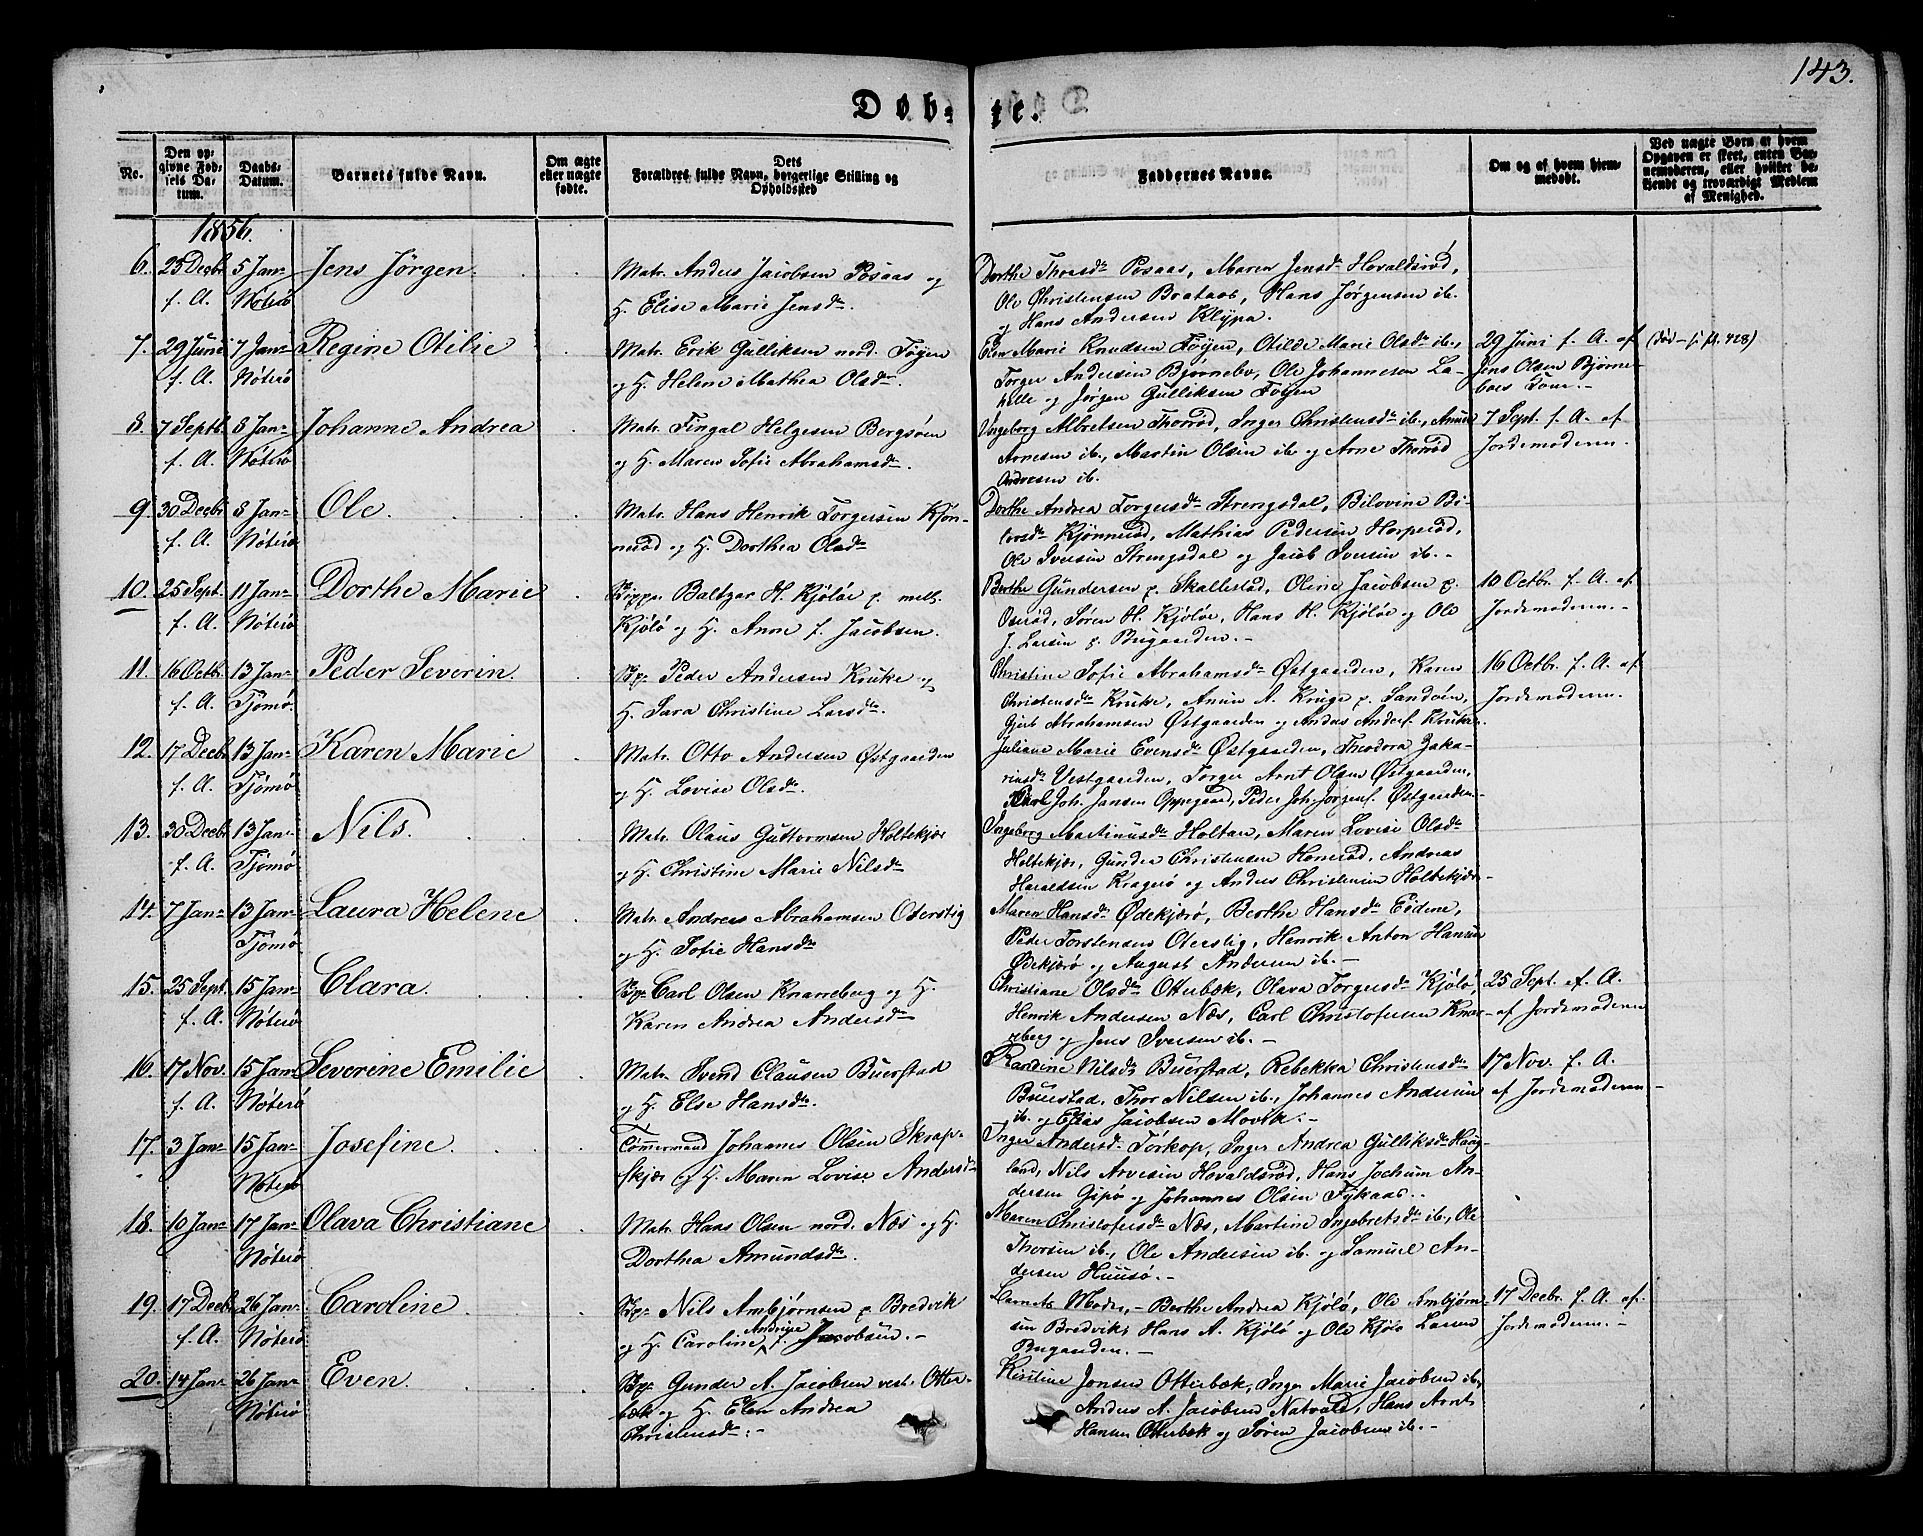 143.
Døbte.
No.
Den opgivne Fødsels Datum.
Daabs-Datum.
Barnets fulde Navn.
Om ægte eller uægte fødte.
Forældres fulde Navn, Dets borgerlige Stilling og Opholdssted
Faddernes Navne.
Om og af hvem hjemmedøbt.
Ved uægte Børn at hvem Opgaven er skeet, enten Barnemoderen, eller hvilket bekendt og troværdigt Medlem af Menighed.
1856.
6. 25 Decbr f. A. 5 Jan. Nøterø Jens Jörgen.
Matr. Anders Jacobsen Posaas og
H. Elise Marie Jensdr.
Dorthe Thoresdr Posaas, Maren Jensdr Hovaldsröd,
Ole Christensen Brataas, Hans Jørgensen ib.
og Hans Andersen Klypa.
7. 29 Juni f. A. 7 Jan. Nøterø Regine Otilie
Matr. Erik Gulliksen nord. Føyen
og H. Helene Mathea Olsdr.
Elen Marie Knudsen Føyen, Otilde Marie Olsdr ib.,
Torger Andersen Bjørnebo, Ole Johannesen La-
helle og Jørgen Gulliksen Føyen
29 Juni f. A. af
Jens Olsen Bjørne-
boes Kone.-
(død - s. fl. 428)
8. 7 Septb. f. A. 8 Jan. Nøterø Johanne Andrea
Matr. Fingal Helgesen Bergsøen
og H. Maren Sofie Abrahamsdr.
Ingeborg Albretsen Thorröd, Inger Christensdr ib., Anund
Arnesen ib., Martin Olsen ib. og Arne Thorröd
Andresen ib.
7 Sept. f. A. af
Jordemoderen.
9. 30 Decbr f. A. 8 Jan. Nøterø Ole.
Matr. Hans Henrik Torgersen Kjøn-
neröd og H. Dorthea Olsdr
Dorthe Andrea Torgersdr Strengsdal, Bilovine Bi-
lovsdr Kjønneröd, Mathias Pedersen Horperöd,
Ole Iversen Strengsdal og Jacob Iversen ib.-
10. 25 Sept. f. A. 11 Jan. Nøterø Dorthe Marie
Skipper Baltzar H. Kjøløe p. mell.
Kjølø og H. Anne f. Jacobsen.
Berthe Gundersen p. Skallestad, Oline Jacobsen p.
Oseröd, Søren H. Kjøløe, Hans H. Kjøløe og Ole
J. Larsen p. Bugaarden.-
10 Octbr. f. A. af
Jordemoderen.-
11. 16 Octb. f. A. 13 Jan. Tjømø Peder Severin.
Bp. Peder Andersen Kruke og
H. Sara Christine Larsdr.
Christine Sofie Abrahamsdr Østgaarden, Karen
Christensdr Kruke, Anun A. Kruge p. Sandøen,
Gjert Abrahamsen Østgaarden og Anders Anders. Kruke.
16 Octbr. f. A. af
Jordemoderen.
12. 17 Decbr f. A. 13 Jan. Tjømø Karen Marie
Matr. Otto Andersen Østgaarden
og H. Lovise Olsdr.
Juliane Marie Evensdr Østgaarden, Theodora Zaka-
riasdr Vestgaarden, Torger Arnt Olsen Østgaarden,
Karl Joh. Jansen Oppegaard, Peder Joh. Jørgens. Østgaarden.
13. 30 Decbr f. A. 13 Jan. Tjømø Nils.
Matr. Olaus Guttormsen Holtekjær
og H. Christine Marie Nilsdr
Ingeborg Martinusdr Holtan, Maren Lovise Olsdr
Holtekjær, Gunder Christensen Honeröd, Andreas
Haraldsen Kragerø og Anders Christensen Holtekjær.-
14. 7 Jan. 13 Jan. Tjømø Laura Helene
Matr. Andreas Abrahamsen Oterstig
og H. Sofie Hansdr
Maren Hansdr Ødekjærø, Berthe Hansdr Eidene,
Peder Torstensen Oterstig, Henrik Anton Hansen
Ødekjærø og August Andersen ib.-
15. 25 Sept. f. A. 15 Jan. Nøterø Clara.
Bp. Carl Olsen Knarreberg og H.
Karen Andrea Andersdr
Christiane Olsdr Otterbæk, Olava Torgersdr Kjølø,
Henrik Andersen Næs, Carl Christofersen Knar-
reberg og Jens Iversen ib.-
25 Sept. f. A.
af Jordemoderen
16. 17 Nov. f. A. 15 Jan. Nøterø Severine Emilie
Matr. Svend Clausen Buerstad
og H. Else Hansdr.
Randine Nilsdr Buerstad, Rebekka Christensdr
Buerstad, Thor Nilsen ib., Johannes Andersen
ib. og Elias Jacobsen Movik.-
17 Nov. f. A.
af Jordemoderen-
17. 3 Jan. 15 Jan. Nøterø Josefine.
Tømmermand Johannes Olsen Skrap-
skjær og H. Maren Lovise Andersdr
Inger Andersdr Torkop, Inger Andrea Gulliksdr Haug-
land, Nils Arvesen Hovaldsröd, Hans Jochum An-
dersen Gipø og Johannes Olsen Fykaas.
18. 10 Jan. 17 Jan. Nøterø Olava Christiane
Matr. Hans Olsen nord. Næs og H.
Dorthea Amundsdr.
Maren Christofersdr Næs, Martine Ingebretsdr ib., Ole
Thorsen ib., Ole Andersen ib. og Samuel An-
dersen Huusø.-
19. 17 Decbr f. A. 26 Jan. Nøterø Caroline
Bp. Nils Ambjørnsen p. Bredvik
og H. Caroline Andrine f. Jacobsen.-
Barnets Moder,- Berthe Andrea Kjølø, Ole Ambjørn-
sen Bredvik, Hans A. Kjølø og Ole Kjølø Larsen
Bugaarden.-
17 Decbr. f. A. af
Jordemoderen.-
20. 14 Jan. 26 Jan. Nøterø Even.
Bp. Gunder A. Jacobsen vest. Otter-
bæk og H. Elen Andrea
Christensdr:-
Kirstine Jonsen Otterbæk, Inger Marie Jacobsen ib.,
Anders A. Jacobsen Natvald, Hans Arnt
Hansen Otterbæk og Søren Jacobsen ib.-